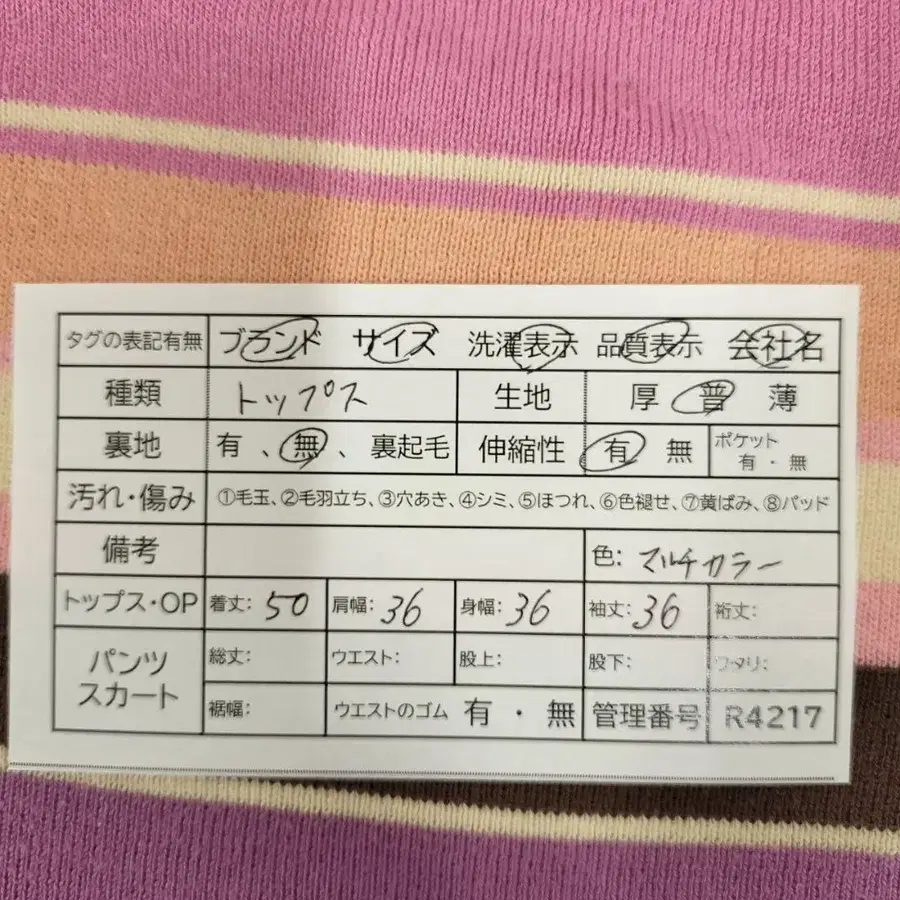 タグの表記有無 ブランド サイズ 洗濯表示 品質表示 会社名
種類 トップス 生地 厚 普 薄
裏地 有 、無 、裏起毛 伸縮性 有 無 ポケット 有・無
汚れ・傷み ①毛玉、②毛羽立ち、③穴あき、④シミ、⑤ほつれ、⑥色褪せ、⑦黄ばみ、⑧パッド
備考 色: マルチカラー
トップス・OP 着丈: 50 肩幅: 36 身幅: 36 袖丈: 36 裄丈:
パンツ スカート 総丈: ウエスト: 股上: 股下: ワタリ:
裾幅: ウエストのゴム 有・無 管理番号 R4217